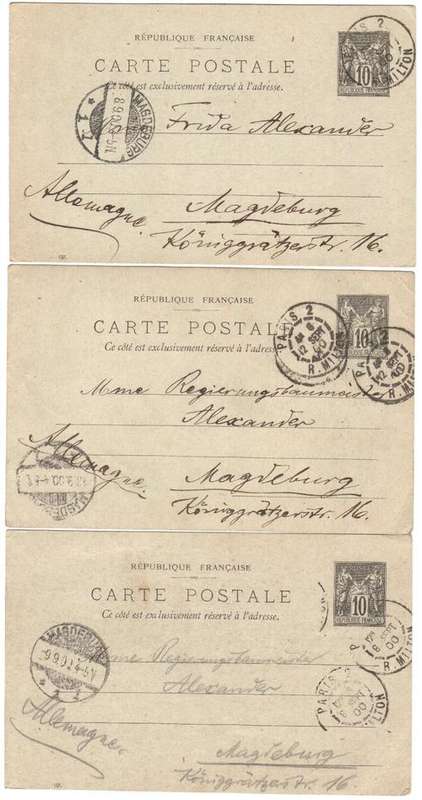 RÉPUBLIQUE FRANÇAISE
CARTE POSTALE
Ce côté est exclusivement réservé à l'adresse.
10
PARIS 2
R. MILTON
MAGDEBURG
* 1
Frida Alexander
Allemagne
Magdeburg
Königgrätzerstr. 16.
RÉPUBLIQUE FRANÇAISE
CARTE POSTALE
Ce côté est exclusivement réservé à l'adresse.
10
PARIS 2
12 SEPT
00
R. MILTON
12 SEPT
00
R. MILTON
Mme Regierungsbaumeister
Alexander
Allemagne
Magdeburg
Königgrätzerstr. 16.
MAGDEBURG
RÉPUBLIQUE FRANÇAISE
CARTE POSTALE
Ce côté est exclusivement réservé à l'adresse.
10
8 SEPT
00
R. MILTON
PARIS
MILTON
MAGDEBURG
Mme Regierungsbaumeister
Alexander
Allemagne
Magdeburg
Königgrätzerstr. 16